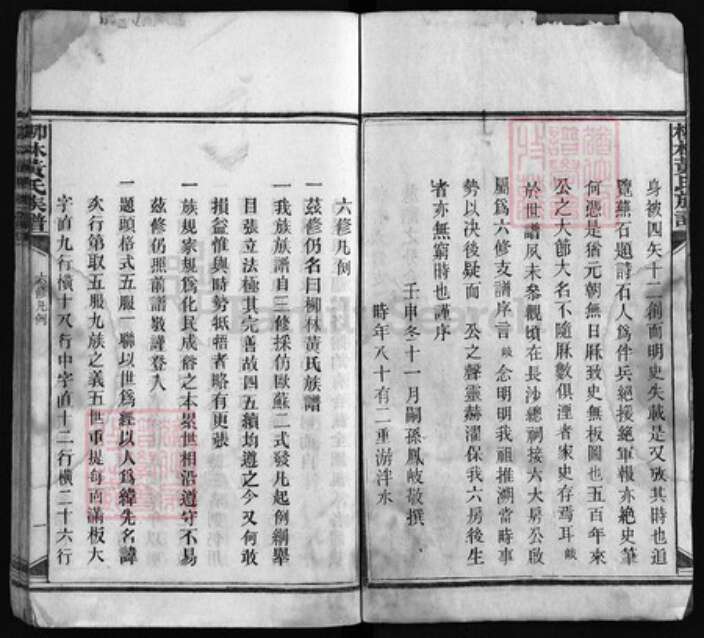 身被四矢十二創而明史失載是又攷其時也追
覽蕪石題詩石人爲伴兵絕接絕軍報亦絕史筆
何憑是猶元朝無日厤致史無板圖也五百年來
公之大節大名不隨厤數俱湮者家史存焉耳
於世譜夙未參觀頃在長沙總祠接六大房公啟
屬爲六修支譜序言 念明明我祖推溯當時事
勢以決後疑而 公之聲靈赫濯保我六房後生
者亦無窮時也謹序
壬申冬十一月嗣孫鳳岐敬撰
時年八十有二重游泮水
柳林黃氏族譜
六修凡例
一
六修凡例
一茲修仍名曰柳林黃氏族譜
一我族族譜自三修採仿歐蘇二式發凡起例綱舉
目張立法極其完善故四五續均遵之今又何敢
損益惟與時勢牴牾者略有更張
一族規家規爲化民成俗之本累世相沿遵守不易
茲修仍照前譜敬謹登入
一題頭格式五服一聯以世爲經以人爲緯先名諱
次行第取五服九族之義五世重提每面滿板大
字直九行橫十八行中字直十二行橫二十六行